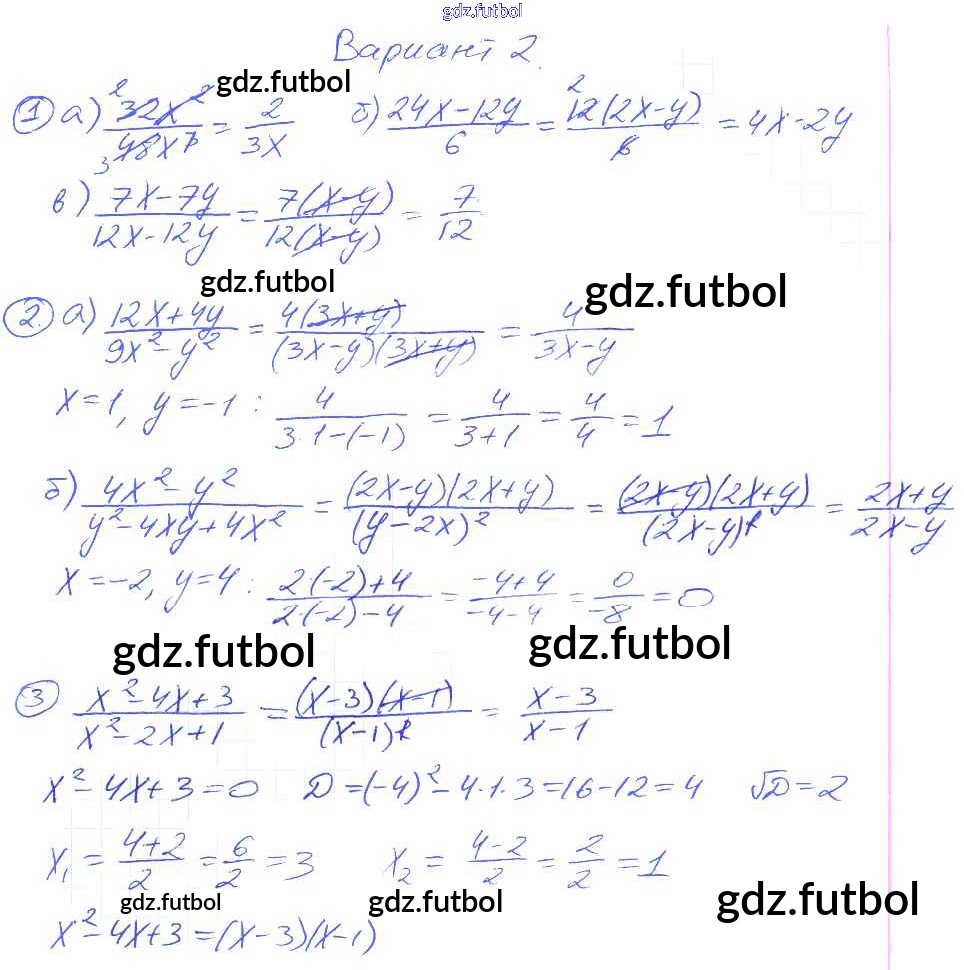 gdz.futbol
Вариант 2.
gdz.futbol
1 а) 32x²/48x³ = 2/3x б) 24x-12y/6 = 12(2x-y)/6 = 4x-2y
в) 7x-7y/12x-12y = 7(x-y)/12(x-y) = 7/12
gdz.futbol gdz.futbol
2. а) 12x+4y/9x²-y² = 4(3x+y)/(3x-y)(3x+y) = 4/3x-y
x=1, y=-1 : 4/3·1-(-1) = 4/3+1 = 4/4 = 1
б) 4x²-y²/y²-4xy+4x² = (2x-y)(2x+y)/(y-2x)² = (2x-y)(2x+y)/(2x-y)² = 2x+y/2x-y
x=-2, y=4 : 2·(-2)+4/2·(-2)-4 = -4+4/-4-4 = 0/-8 = 0
gdz.futbol gdz.futbol
3 x²-4x+3/x²-2x+1 = (x-3)(x-1)/(x-1)² = x-3/x-1
x²-4x+3=0 D=(-4)²-4·1·3=16-12=4 √D=2
x₁ = 4+2/2 = 6/2 = 3 x₂ = 4-2/2 = 2/2 = 1
gdz.futbol gdz.futbol gdz.futbol
x²-4x+3=(x-3)(x-1)